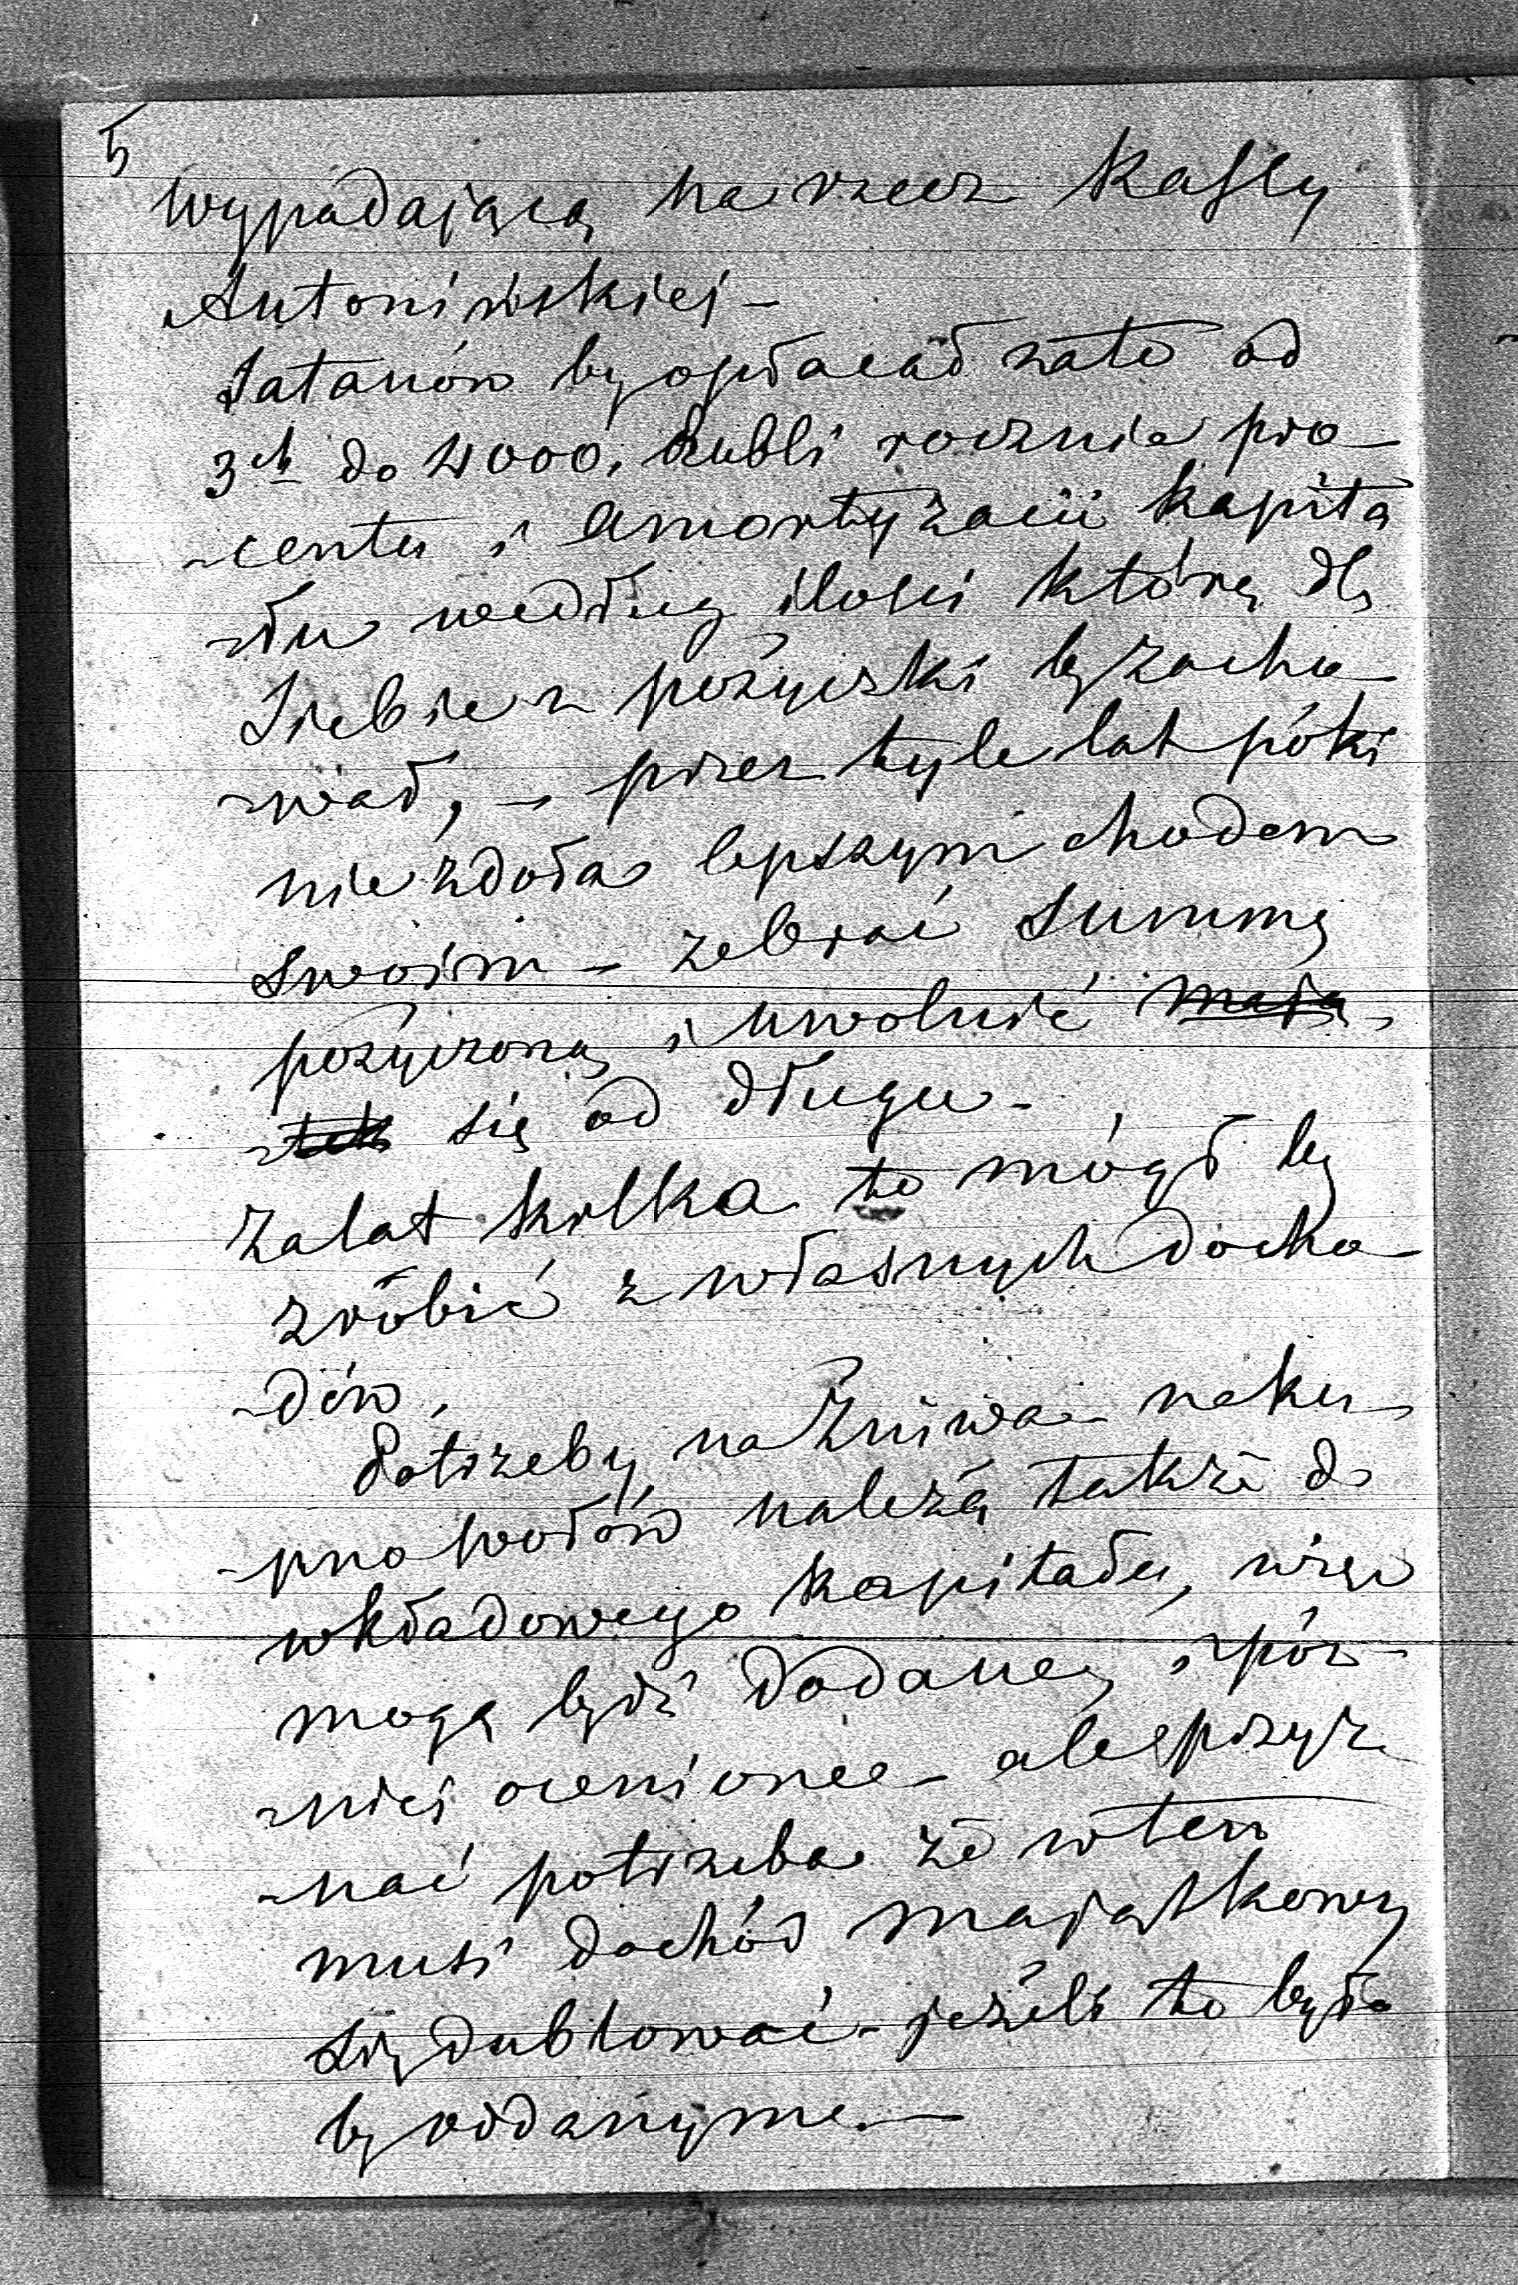 5
wypadającą na rzecz Kassy
Antonińskiej –
Satanów by opłacał zato od
3ch do 4000. Rubli rocznie pro-
-centu i amortyzacii kapita
-łu według ilosci którą dla
Siebie z pożyczki by zacho-
-wał, – przez tyle lat póki
nie zdoła lepszym chodem
swoim – zebrać summę
pożyczoną i uwolnić mają-
-tek się od długu –
Za lat kilka to mógł by
zróbić z własnych docho-
-dów.
Potrzeby na Żniwa – naku-
-pno wołów należą także do
wkładowego kapitału, więc
mogą bydź dodane, i póz-
-niej ocenione – ale przyz-
-nać potrzeba że wten
musi dochód majątkowy
się dublować – jeżeli to było
by oddanym. –